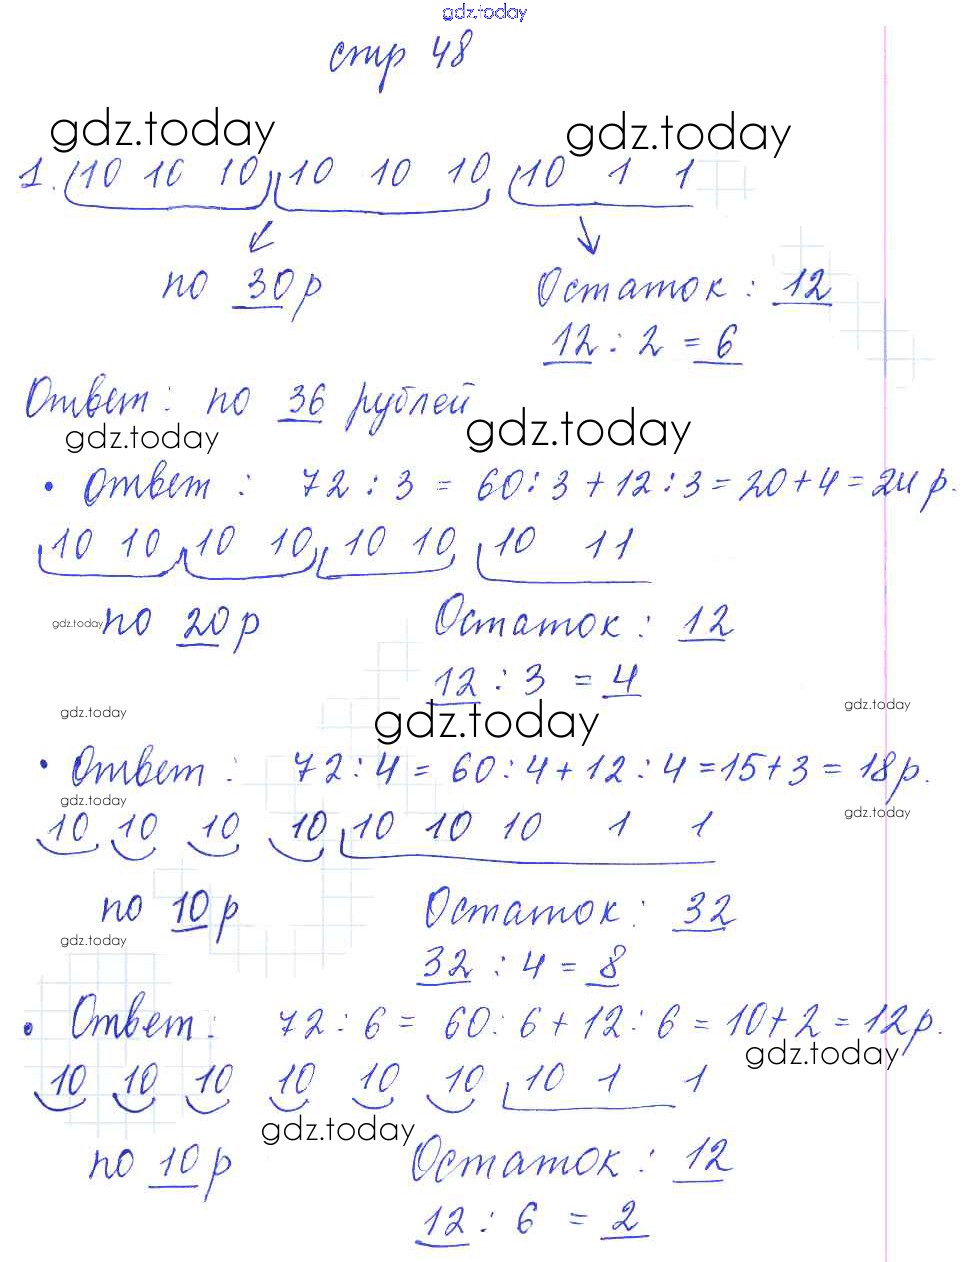 gdz.today
стр 48
gdz.today gdz.today
1. 10 10 10 10 10 10 10 1 1
по 30 р Остаток : 12
12 : 2 = 6
Ответ : по 36 рублей
gdz.today gdz.today
• Ответ : 72 : 3 = 60 : 3 + 12 : 3 = 20 + 4 = 24 р.
10 10 10 10 10 10 10 1 1
gdz.today по 20 р Остаток : 12
12 : 3 = 4
gdz.today gdz.today gdz.today
• Ответ : 72 : 4 = 60 : 4 + 12 : 4 = 15 + 3 = 18 р.
gdz.today gdz.today
10 10 10 10 10 10 10 1 1
по 10 р Остаток : 32
gdz.today
32 : 4 = 8
• Ответ : 72 : 6 = 60 : 6 + 12 : 6 = 10 + 2 = 12 р.
gdz.today
10 10 10 10 10 10 10 1 1
gdz.today
по 10 р Остаток : 12
12 : 6 = 2